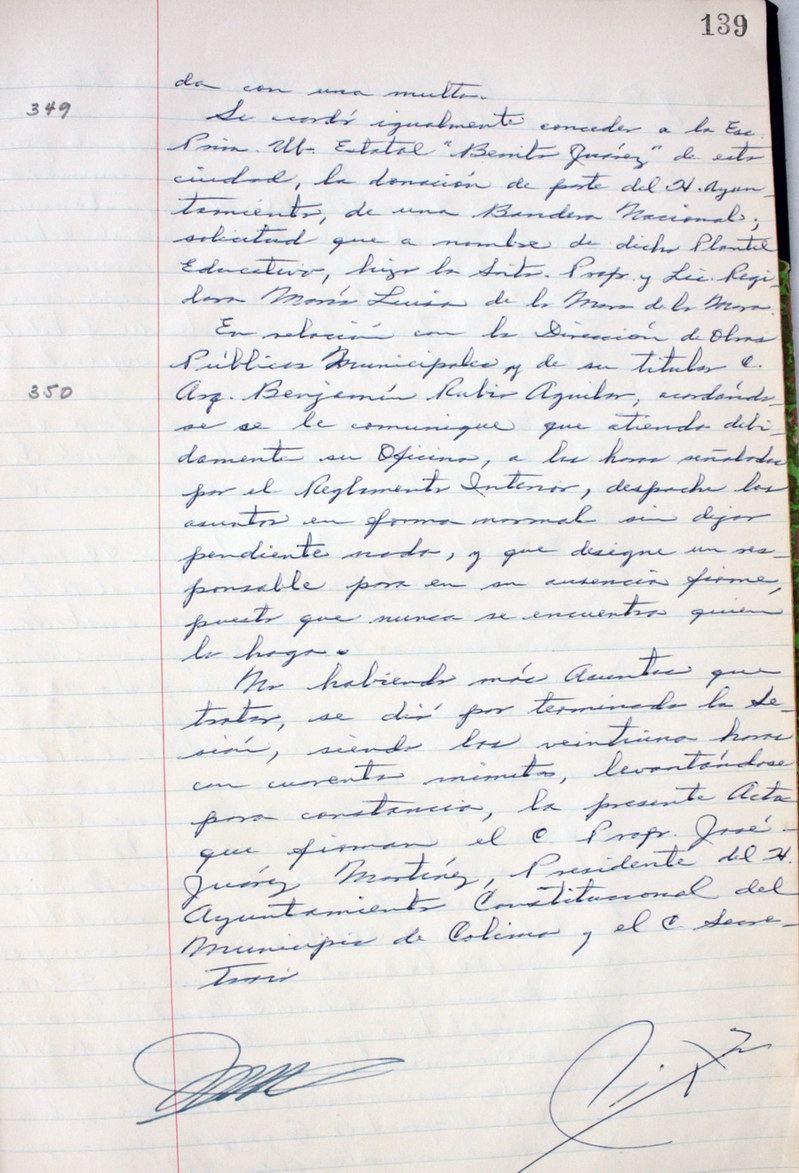 139
da con una multa.
349
Se acordó igualmente conceder a la Esc.
Prim. Ub. Estatal "Benito Juárez" de esta
ciudad, la donación de parte del H. Ayun-
tamiento, de una Bandera Nacional;
solicitud que a nombre de dicho Plantel
Educativo, hizo la Srita. Profr. y Lic. Regi-
dora María Luisa de la Mora de la Mora.
En relación con la Dirección de Obras
Públicas Municipales y de su titular C.
350
Arq. Benjamín Rubio Aguilar, acordándo-
se se le comunique que atienda debi-
damente su Oficina, a las horas señaladas
por el Reglamento Interior, despache los
asuntos en forma normal sin dejar
pendiente nada, y que designe un res-
ponsable para en su ausencia firme,
puesto que nunca se encuentra quien
lo haga.
No habiendo más Asuntos que
tratar, se dió por terminada la Se-
sión, siendo las veintiuna horas
con cuarenta minutos, levantándose
para constancia, la presente Acta
que firman el C. Profr. José
Juárez Martínez, Presidente del H.
Ayuntamiento Constitucional del
Municipio de Colima y el C. Secre-
tario